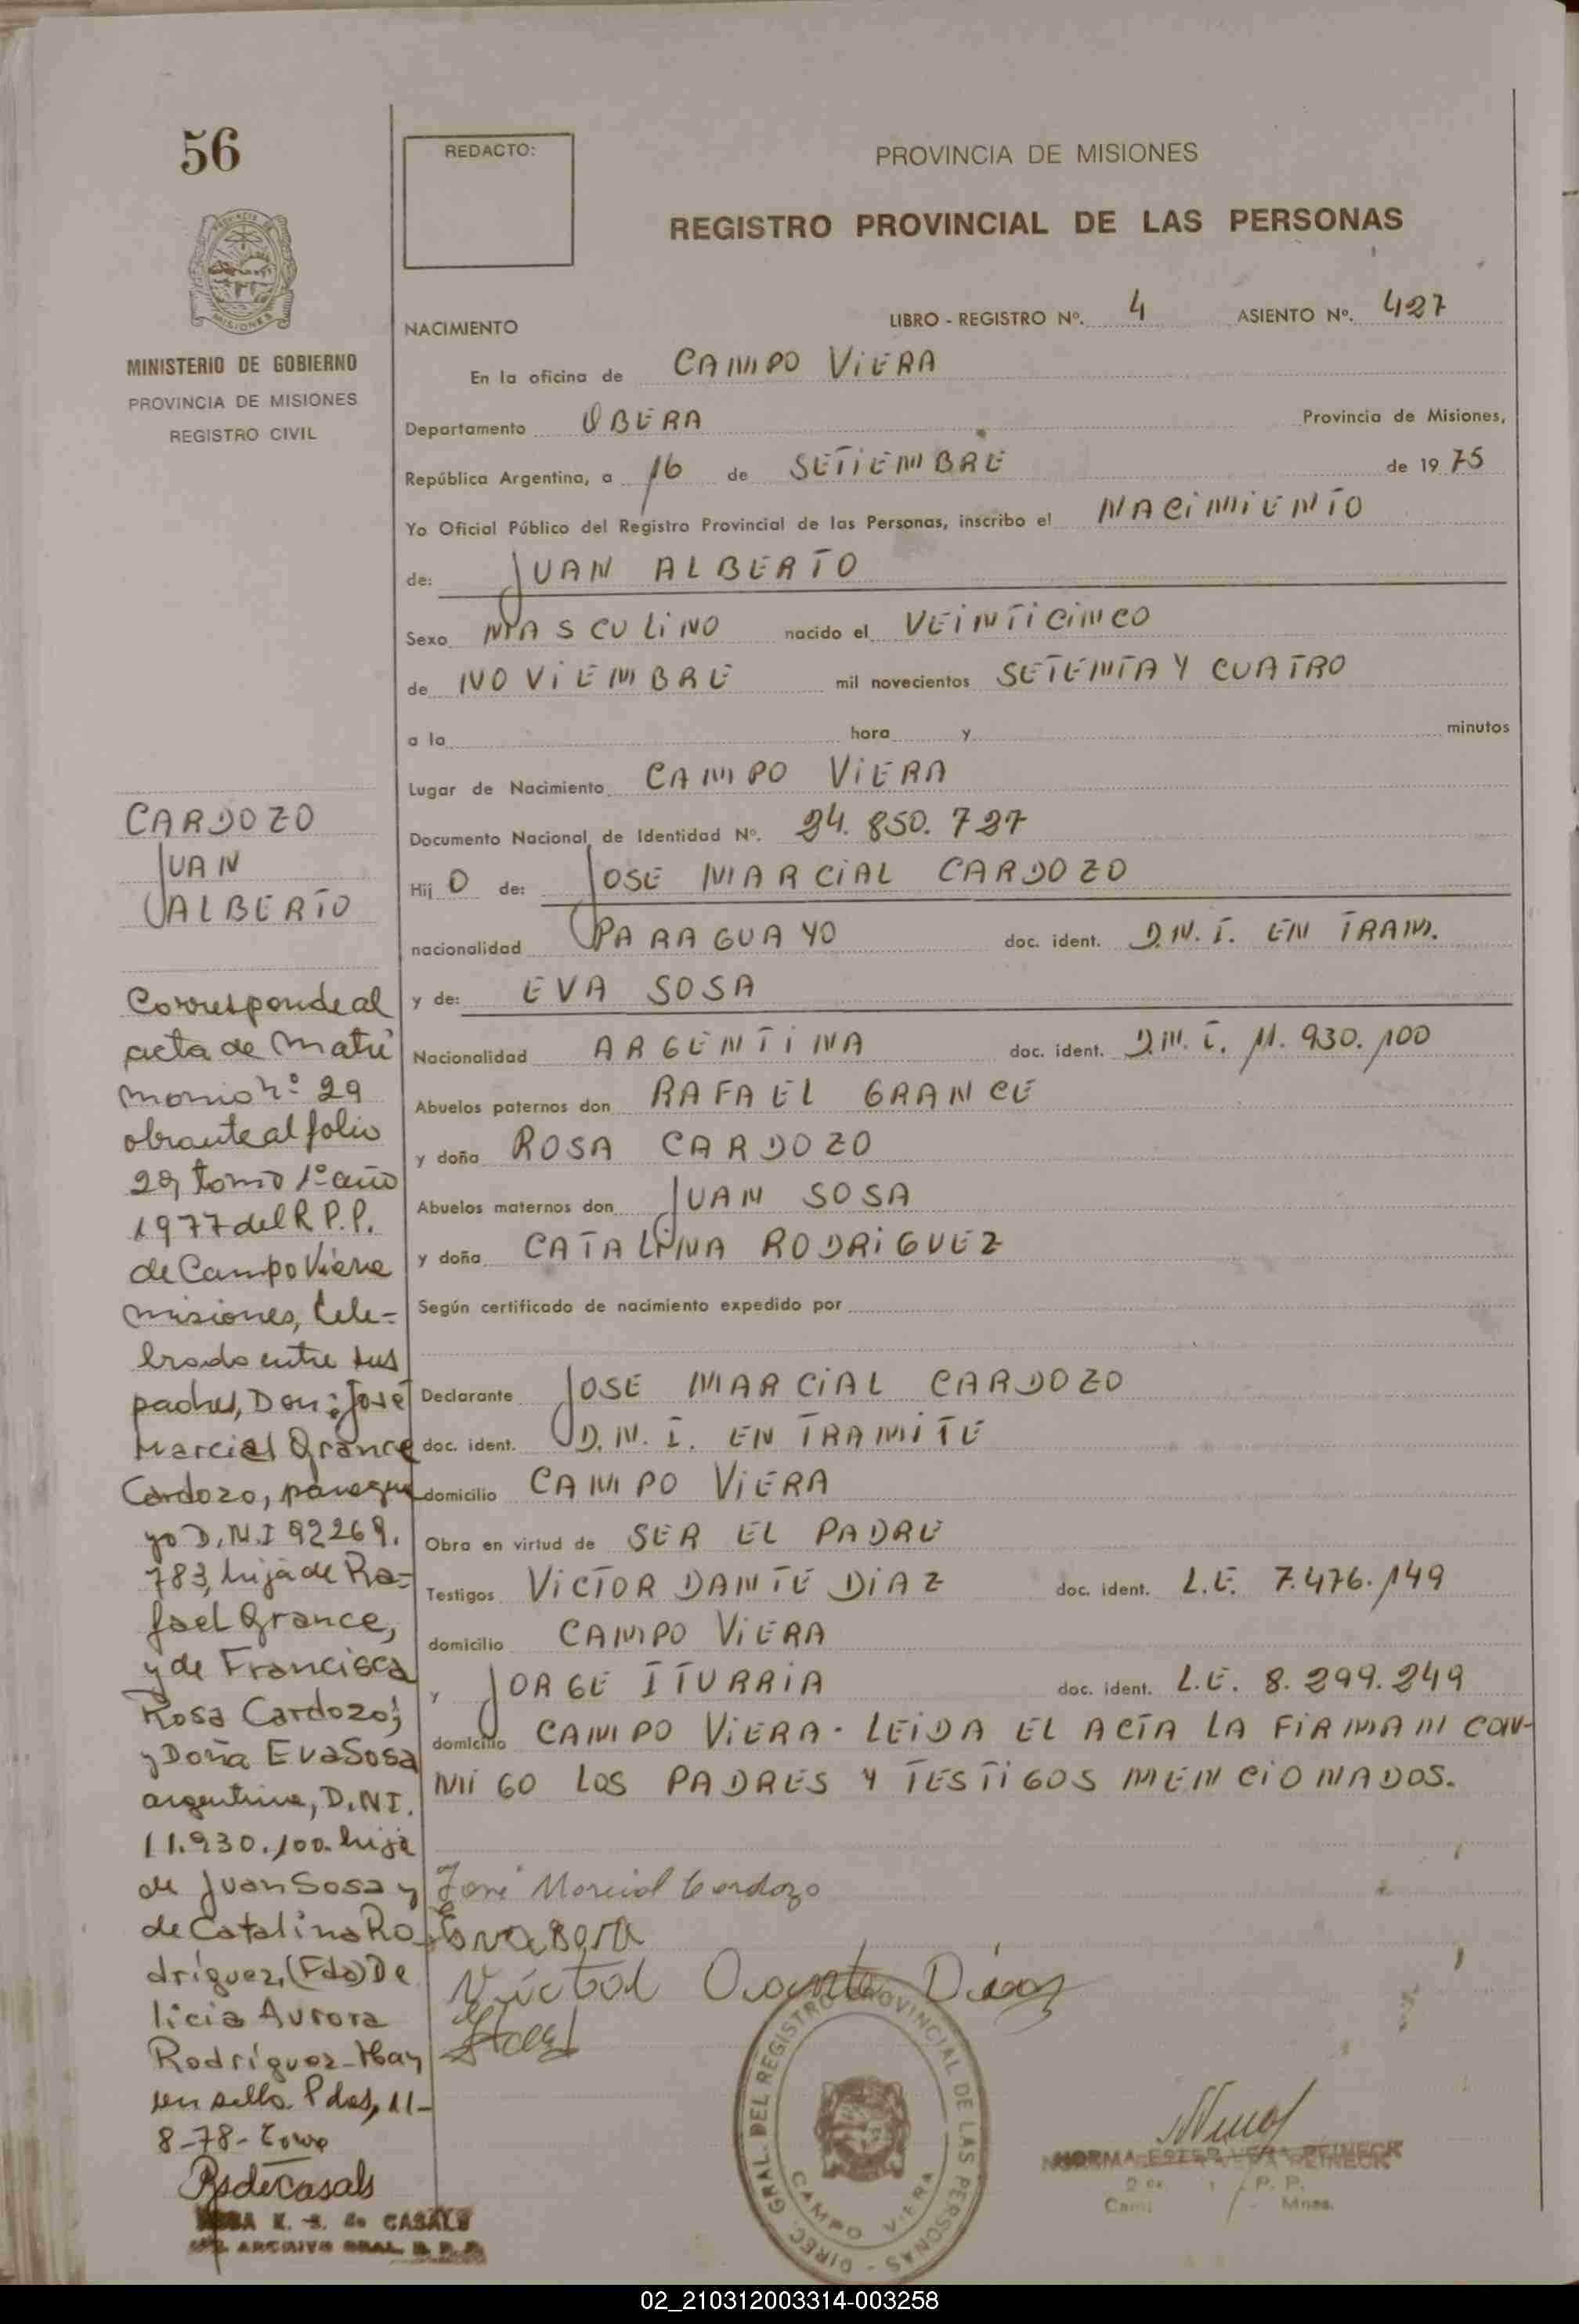 56
REDACTO:
PROVINCIA DE MISIONES
REGISTRO PROVINCIAL DE LAS PERSONAS
MINISTERIO DE GOBIERNO
PROVINCIA DE MISIONES
REGISTRO CIVIL
NACIMIENTO
LIBRO - REGISTRO Nº. 4 ASIENTO Nº. 427
En la oficina de CAMPO VIERA
Departamento OBERA Provincia de Misiones,
República Argentina, a 16 de SETIEMBRE de 1975
Yo Oficial Público del Registro Provincial de las Personas, inscribo el NACIMIENTO
de: JUAN ALBERTO
Sexo MASCULINO nacido el VEINTICINCO
de NOVIEMBRE mil novecientos SETENTA Y CUATRO
a la hora y minutos
Lugar de Nacimiento CAMPO VIERA
Documento Nacional de Identidad Nº. 24.850.727
Hij O de: JOSE MARCIAL CARDOZO
nacionalidad PARAGUAYO doc. ident. D.N.I. EN TRAM.
y de: EVA SOSA
Nacionalidad ARGENTINA doc. ident. D.N.I. 11.930.100
Abuelos paternos don RAFAEL GRANCE
y doña ROSA CARDOZO
Abuelos maternos don JUAN SOSA
y doña CATALINA RODRIGUEZ
Según certificado de nacimiento expedido por
Declarante JOSE MARCIAL CARDOZO
doc. ident. D.N.I. EN TRAMITE
domicilio CAMPO VIERA
Obra en virtud de SER EL PADRE
Testigos VICTOR DANTE DIAZ doc. ident. L.E. 7.476.149
domicilio CAMPO VIERA
y JORGE ITURRIA doc. ident. L.E. 8.299.249
domicilio CAMPO VIERA - LEIDA EL ACTA LA FIRMAN CON-
MIGO LOS PADRES Y TESTIGOS MENCIONADOS.
José Marcial Cardozo
Eva Sosa
Victor Dante Diaz
CARDOZO
JUAN
ALBERTO
Corresponde al
acta de Matri
monio nº 29
obrante al folio
29 tomo 1º año
1977 del R.P.P.
de Campo Viera
Misiones, Cele-
brado entre sus
padres, Don: José
Marcial Grance
Cardozo, paragua
yo D.N.I 92269.
783, hijo de Ra-
fael Grance,
y de Francisca
Rosa Cardozo;
y Doña Eva Sosa
argentina, D.N.I.
11.930.100. hija
de Juan Sosa y
de Catalina Ro
dríguez, (Fdo) De
licia Aurora
Rodríguez - Hay
un sello Pdas, 11-
8-78-
RsdeCasals
K. S. de CASALS
ARCHIVO GRAL. R. P. P.
DIREC. GRAL. DEL REGISTRO PROVINCIAL DE LAS PERSONAS -
CAMPO VIERA
NORMA ESTER VERA REINECK
02_210312003314-003258